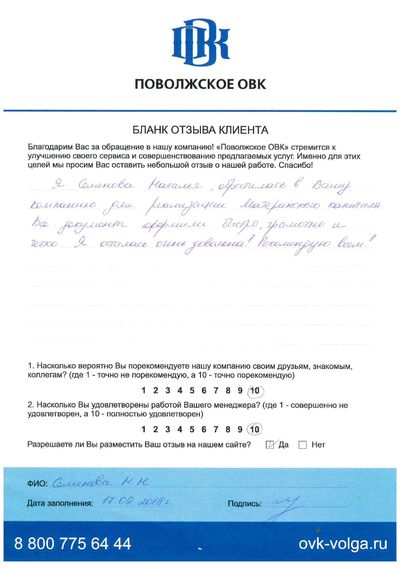 ПОВОЛЖСКОЕ ОВК
БЛАНК ОТЗЫВА КЛИЕНТА
Благодарим Вас за обращение в нашу компанию! «Поволжское ОВК» стремится к
улучшению своего сервиса и совершенствованию предлагаемых услуг. Именно для этих
целей мы просим Вас оставить небольшой отзыв о нашей работе. Спасибо!
Я Семенова Наталья, обратилась в Вашу
компанию для реализации Материнского капитала
Все документы оформили быстро, грамотно и
четко. Я осталась очень довольна! Рекомендую всем!
1. Насколько вероятно Вы порекомендуете нашу компанию своим друзьям, знакомым,
коллегам? (где 1 - точно не порекомендую, а 10 - точно порекомендую)
1 2 3 4 5 6 7 8 9 10
2. Насколько Вы удовлетворены работой Вашего менеджера? (где 1 - совершенно не
удовлетворен, а 10 - полностью удовлетворен)
1 2 3 4 5 6 7 8 9 10
Разрешаете ли Вы разместить Ваш отзыв на нашем сайте? Да Нет
ФИО: Семенова Н.Н.
Дата заполнения: 17.08.2018г. Подпись:
8 800 775 64 44 ovk-volga.ru